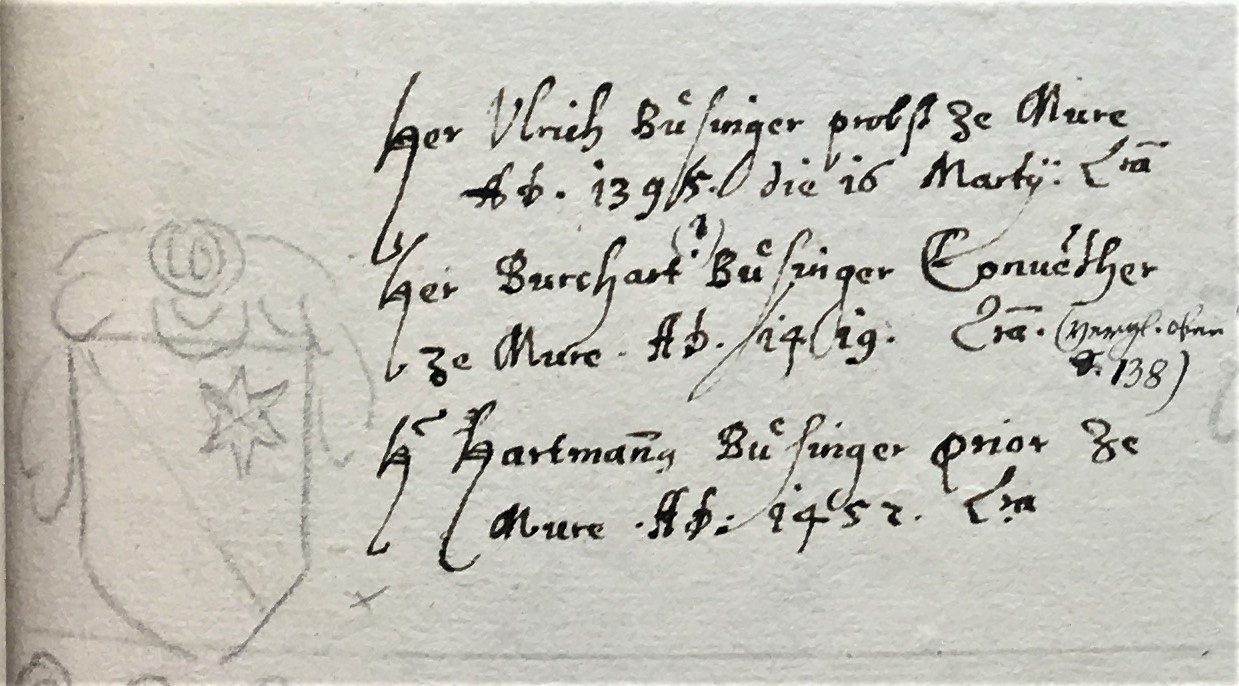 Her Vlrich Buͤsinger probst ze Mure
Aō. 1395. die 16 Martÿ. Lrā
(?)
Her Burchart Buͤsinger Conuēther
ze Mure. Aō. 1419. Lrā. (vergl. oben
S. 138)
Hr Hartmann Buͤsinger prior ze
Mure. Aō. 1452. Lra